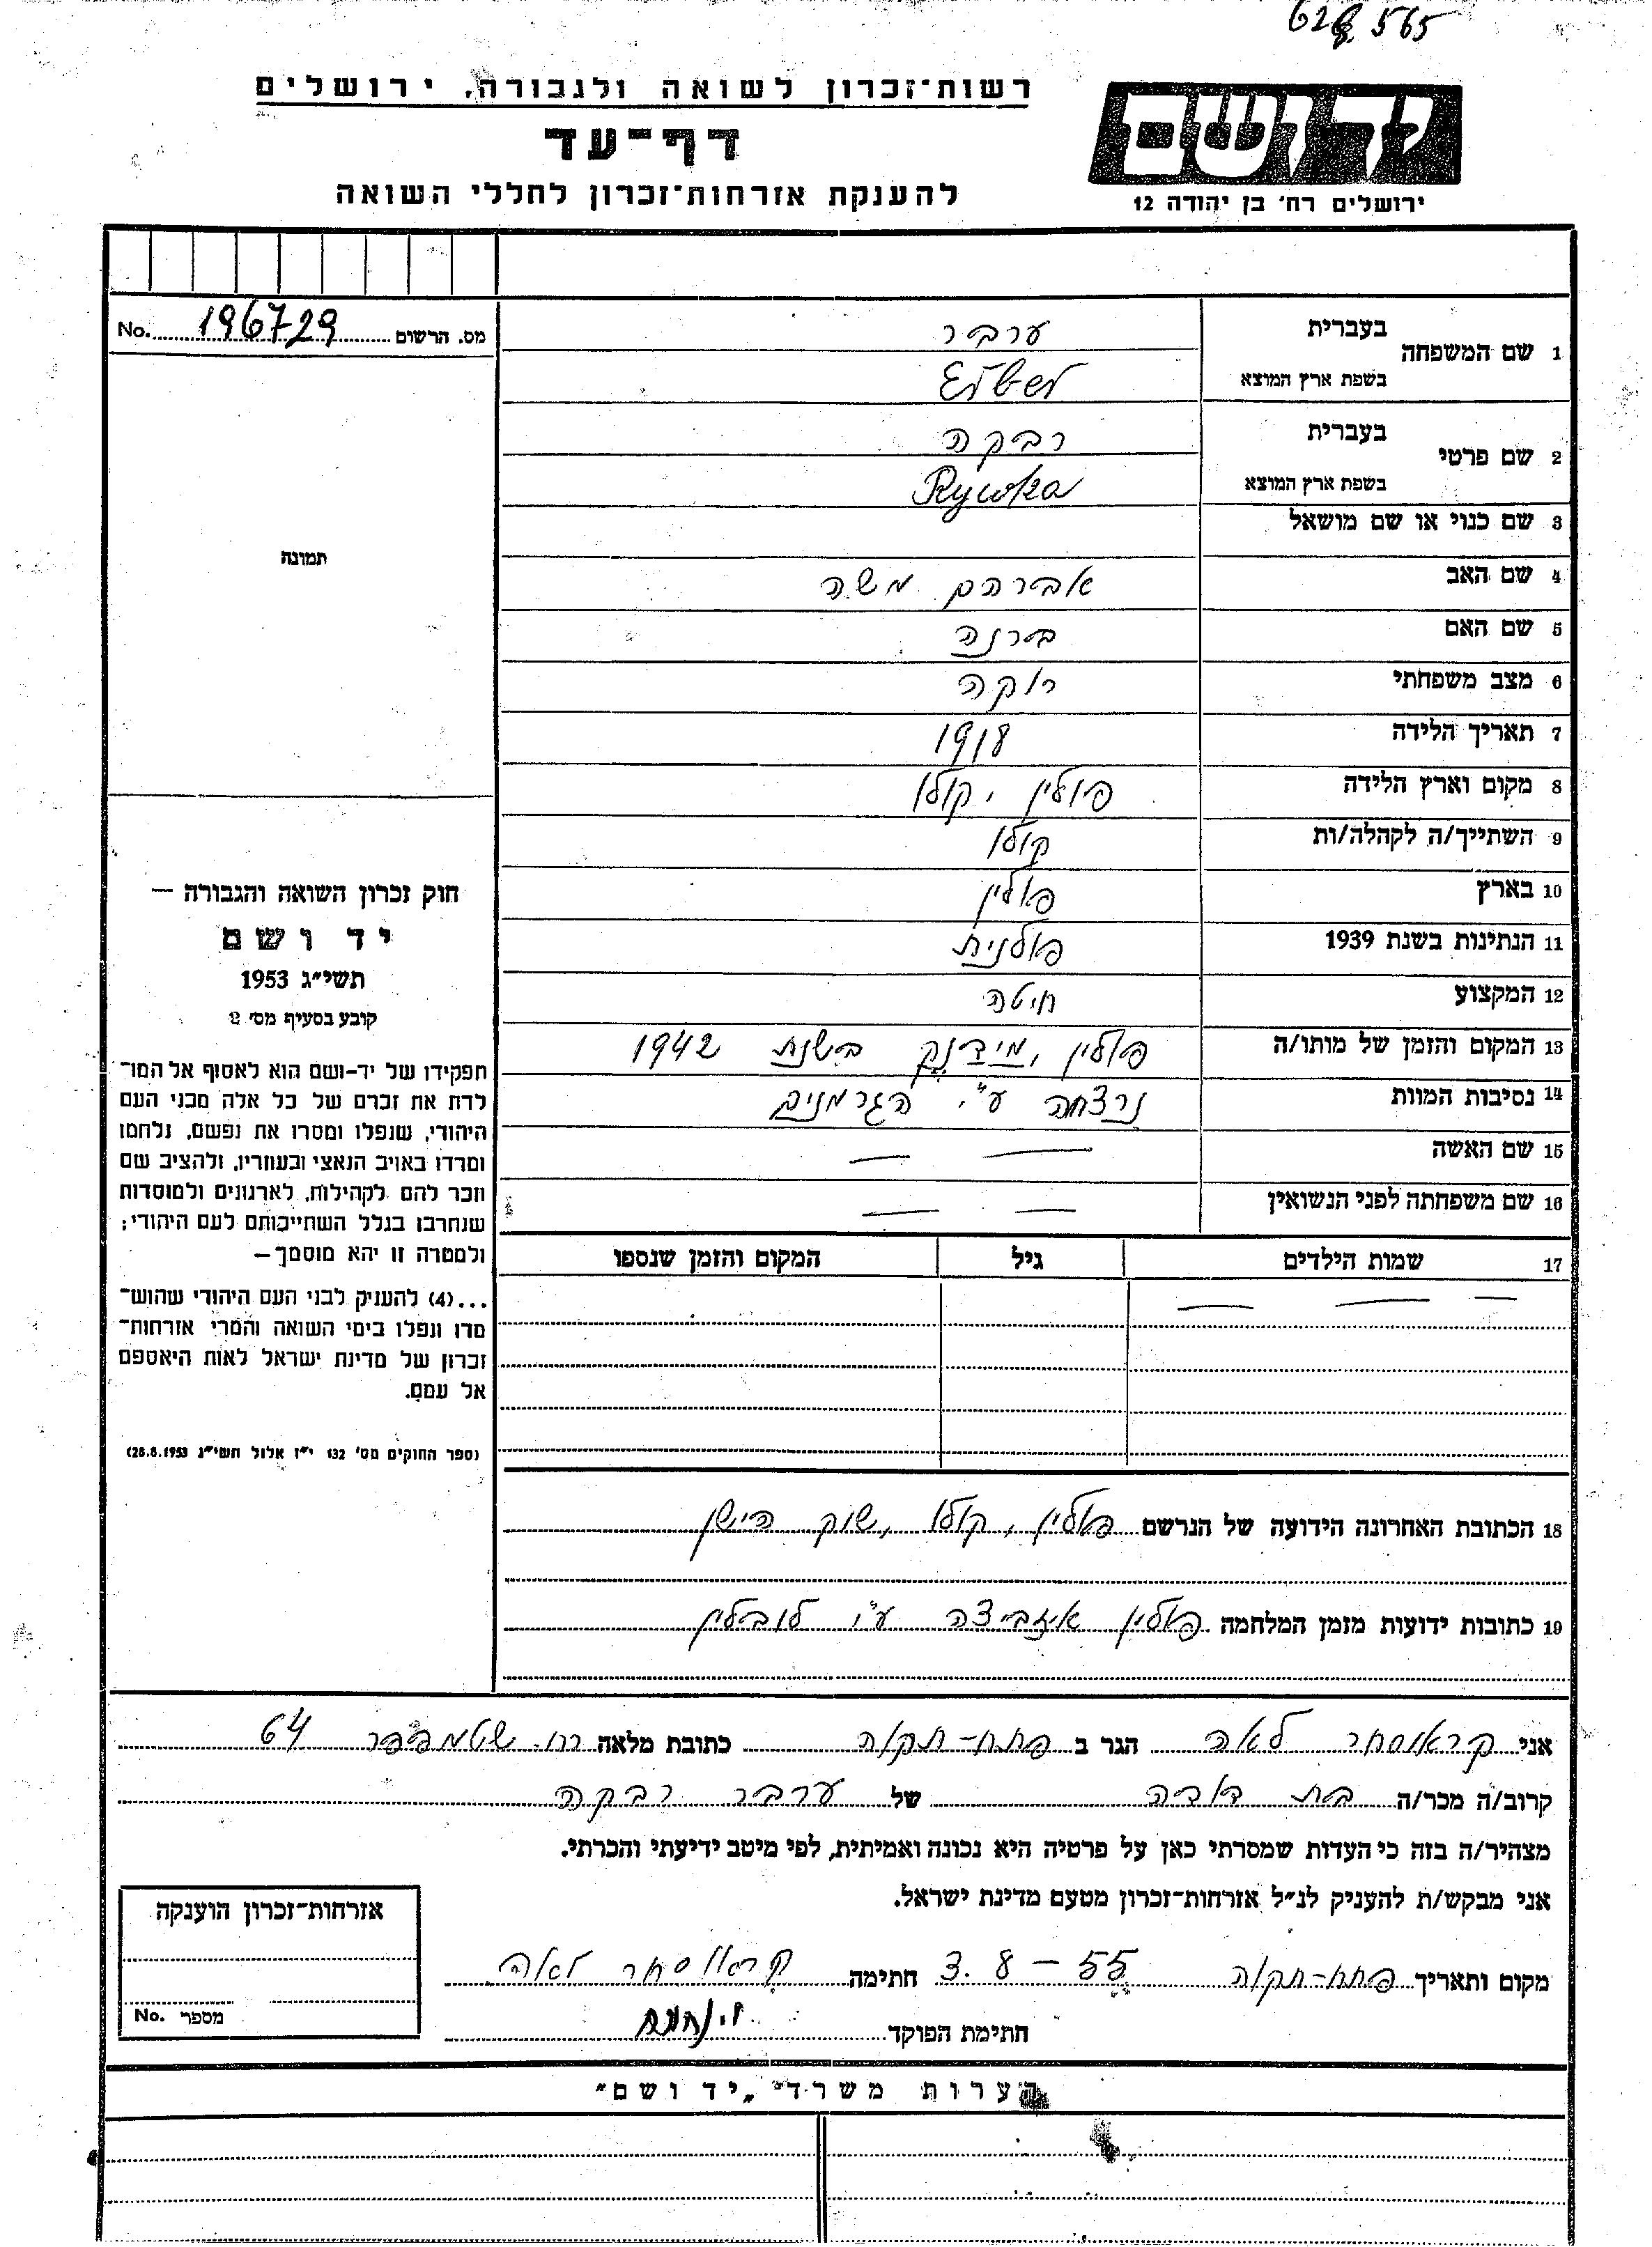 628.565
רשות־זכרון לשואה ולגבורה, ירושלים
ידושם
דף־עד
להענקת אזרחות־זכרון לחללי השואה
ירושלים רח׳ בן יהודה 12
מס. הרשום 196729 No.
תמונה
1 שם המשפחה בעברית ערבר
בשפת ארץ המוצא Erber
2 שם פרטי בעברית רבקה
בשפת ארץ המוצא Rywka
3 שם כנוי או שם מושאל
4 שם האב אברהם משה
5 שם האם ברנה
6 מצב משפחתי רוקה
7 תאריך הלידה 1918
8 מקום וארץ הלידה פולין, קולו
9 השתייך/ה לקהלה/ות קולו
10 בארץ פולין
11 הנתינות בשנת 1939 פולנית
12 המקצוע חיטה
13 המקום והזמן של מותו/ה פולין, מידנק בשנת 1942
14 נסיבות המוות נרצחה ע״י הגרמנים
15 שם האשה — —
16 שם משפחתה לפני הנשואין — —
17 שמות הילדים גיל המקום והזמן שנספו
— — —
חוק זכרון השואה והגבורה —
יד ושם
תשי״ג 1953
קובע בסעיף מס׳ 2
תפקידו של יד-ושם הוא לאסוף אל המו־
לדת את זכרם של כל אלה מבני העם
היהודי, שנפלו ומסרו את נפשם, נלחמו
ומרדו באויב הנאצי ובעוזריו, ולהציב שם
וזכר להם לקהילות, לארגונים ולמוסדות
שנחרבו בגלל השתייכותם לעם היהודי;
ולמטרה זו יהא מוסמך —
...(4) להעניק לבני העם היהודי שהוש־
מדו ונפלו בימי השואה והמרי אזרחות־
זכרון של מדינת ישראל לאות היאספם
אל עמם.
(ספר החוקים מס׳ 132 י״ז אלול תשי״ג 28.8.1953)
18 הכתובת האחרונה הידועה של הנרשם פולין, קולו, שוק הישן
19 כתובות ידועות מזמן המלחמה פולין איזביצה ע״י לובלין
אני קראוסהר לאה הגר ב פתח-תקוה כתובת מלאה רח. שטמפפר 64
קרוב/ה מכר/ה בת דודה של ערבר רבקה
מצהיר/ה בזה כי העדות שמסרתי כאן על פרטיה היא נכונה ואמיתית, לפי מיטב ידיעתי והכרתי.
אני מבקש/ת להעניק לנ״ל אזרחות־זכרון מטעם מדינת ישראל.
מקום ותאריך פתח-תקוה 3.8-55 חתימה קראוסהר לאה
חתימת הפוקד
אזרחות־זכרון הוענקה
מספר No.
הערות משרד־ „יד ושם״